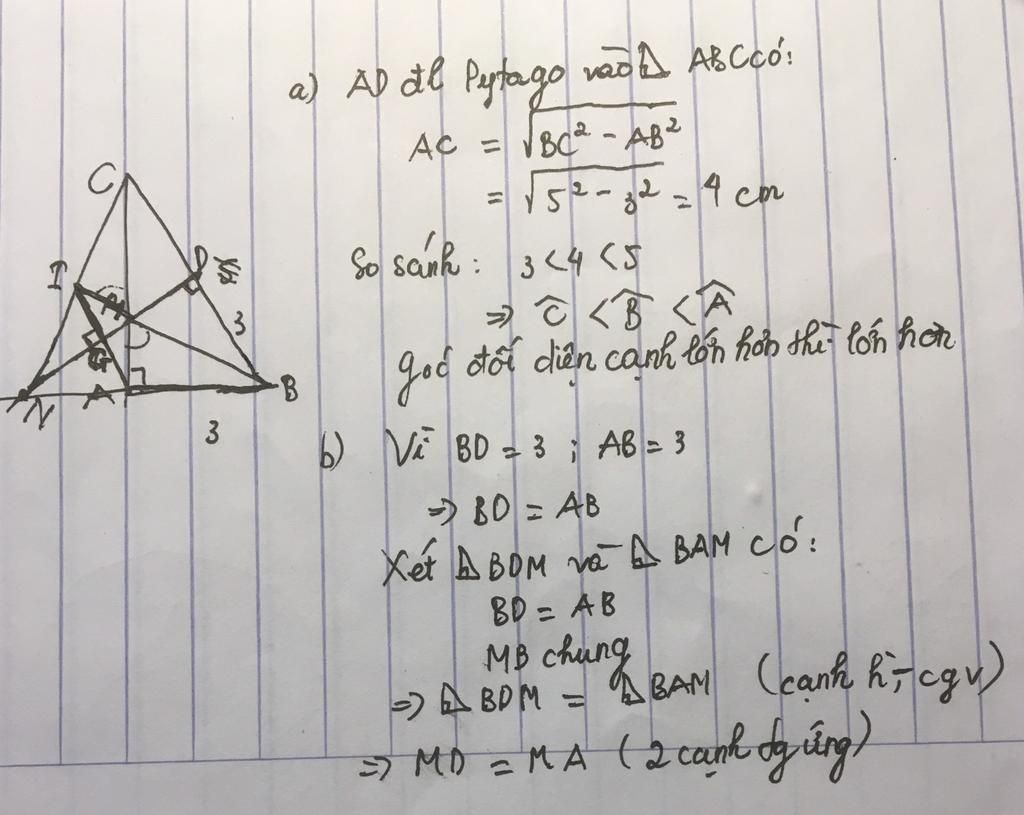 a) AD đl Pytago vào ⊿ ABC có:
AC = √BC² - AB²
= √5² - 3² = 4 cm
So sánh : 3 < 4 < 5
⇒ Ĉ < B̂ < Â
góc đối diện cạnh lớn hơn thì lớn hơn
b) Vì BD = 3 ; AB = 3
⇒ BD = AB
Xét ⊿ BDM và ⊿ BAM có:
BD = AB
MB chung
⇒ ⊿ BDM = ⊿ BAM (cạnh h - cgv)
⇒ MD = MA (2 cạnh đg ứng)
C
I
M
D
3
G
N
A
B
3